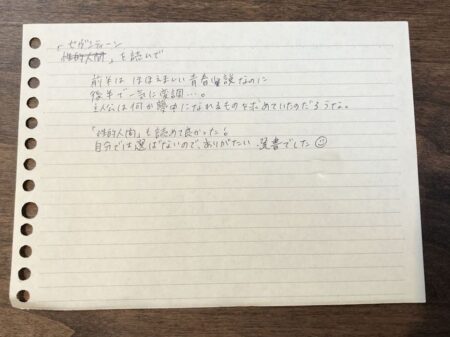 「セヴンティーン
性的人間」を読んで
前半は ほほえましい青春小説なのに
後半で一気に変調…。
主人公は何か夢中になれるものを求めていたのだろうな。
「性的人間」も読めて良かった！
自分では選ばないので、ありがたい 選書でした☺